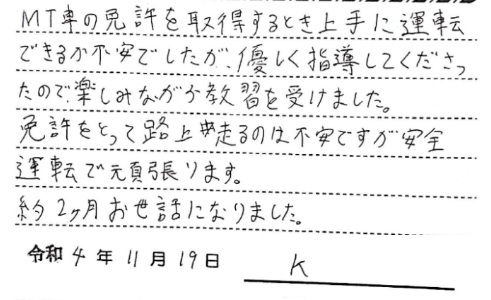 MT車の免許を取得するとき上手に運転
できるか不安でしたが、優しく指導してくださっ
たので、楽しみながら教習を受けました。
免許をとって路上走るのは不安ですが安全
運転で頑張ります。
約2ヶ月お世話になりました。
令和 4 年 11 月 19 日 K